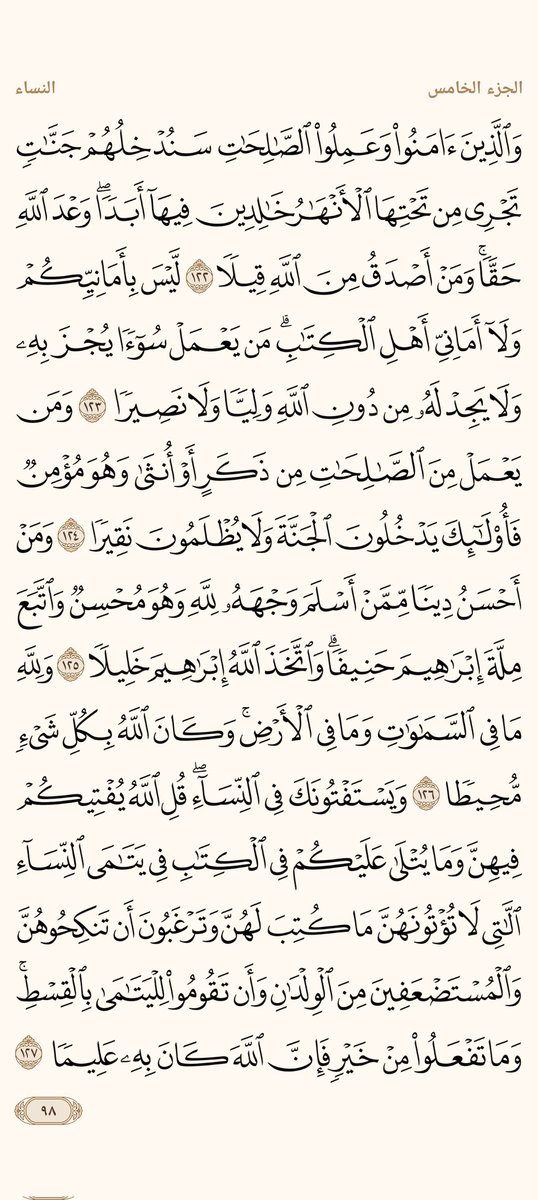 الجزء الخامس
النساء
وَٱلَّذِينَ ءَامَنُوا۟ وَعَمِلُوا۟ ٱلصَّـٰلِحَـٰتِ سَنُدْخِلُهُمْ جَنَّـٰتٍ
تَجْرِى مِن تَحْتِهَا ٱلْأَنْهَـٰرُ خَـٰلِدِينَ فِيهَآ أَبَدًا ۖ وَعْدَ ٱللَّهِ
حَقًّا ۚ وَمَنْ أَصْدَقُ مِنَ ٱللَّهِ قِيلًا ١٢٢ لَّيْسَ بِأَمَانِيِّكُمْ
وَلَآ أَمَانِىِّ أَهْلِ ٱلْكِتَـٰبِ ۗ مَن يَعْمَلْ سُوٓءًا يُجْزَ بِهِۦ
وَلَا يَجِدْ لَهُۥ مِن دُونِ ٱللَّهِ وَلِيًّا وَلَا نَصِيرًا ١٢٣ وَمَن
يَعْمَلْ مِنَ ٱلصَّـٰلِحَـٰتِ مِن ذَكَرٍ أَوْ أُنثَىٰ وَهُوَ مُؤْمِنٌ
فَأُو۟لَـٰٓئِكَ يَدْخُلُونَ ٱلْجَنَّةَ وَلَا يُظْلَمُونَ نَقِيرًا ١٢٤ وَمَنْ
أَحْسَنُ دِينًا مِّمَّنْ أَسْلَمَ وَجْهَهُۥ لِلَّهِ وَهُوَ مُحْسِنٌ وَٱتَّبَعَ
مِلَّةَ إِبْرَٰهِيمَ حَنِيفًا ۗ وَٱتَّخَذَ ٱللَّهُ إِبْرَٰهِيمَ خَلِيلًا ١٢٥ وَلِلَّهِ
مَا فِى ٱلسَّمَـٰوَٰتِ وَمَا فِى ٱلْأَرْضِ ۚ وَكَانَ ٱللَّهُ بِكُلِّ شَىْءٍ
مُّحِيطًا ١٢٦ وَيَسْتَفْتُونَكَ فِى ٱلنِّسَآءِ ۖ قُلِ ٱللَّهُ يُفْتِيكُمْ
فِيهِنَّ وَمَا يُتْلَىٰ عَلَيْكُمْ فِى ٱلْكِتَـٰبِ فِى يَتَـٰمَى ٱلنِّسَآءِ
ٱلَّـٰتِى لَا تُؤْتُونَهُنَّ مَا كُتِبَ لَهُنَّ وَتَرْغَبُونَ أَن تَنكِحُوهُنَّ
وَٱلْمُسْتَضْعَفِينَ مِنَ ٱلْوِلْدَٰنِ وَأَن تَقُومُوا۟ لِلْيَتَـٰمَىٰ بِٱلْقِسْطِ ۚ
وَمَا تَفْعَلُوا۟ مِنْ خَيْرٍ فَإِنَّ ٱللَّهَ كَانَ بِهِۦ عَلِيمًا ١٢٧
٩٨